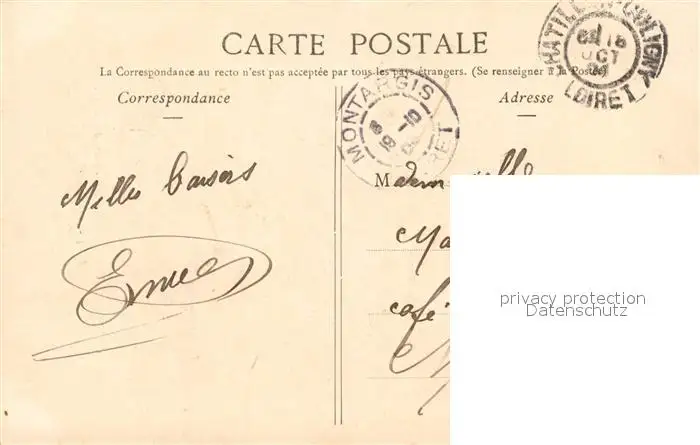 CARTE POSTALE
La Correspondance au recto n'est pas acceptée par tous les pays étrangers. (Se renseigner à la Poste)
Correspondance
Adresse
MONTARGIS
LOIRET
OCT
Milles baisers
Mademoiselle
Ma
café
privacy protection
Datenschutz